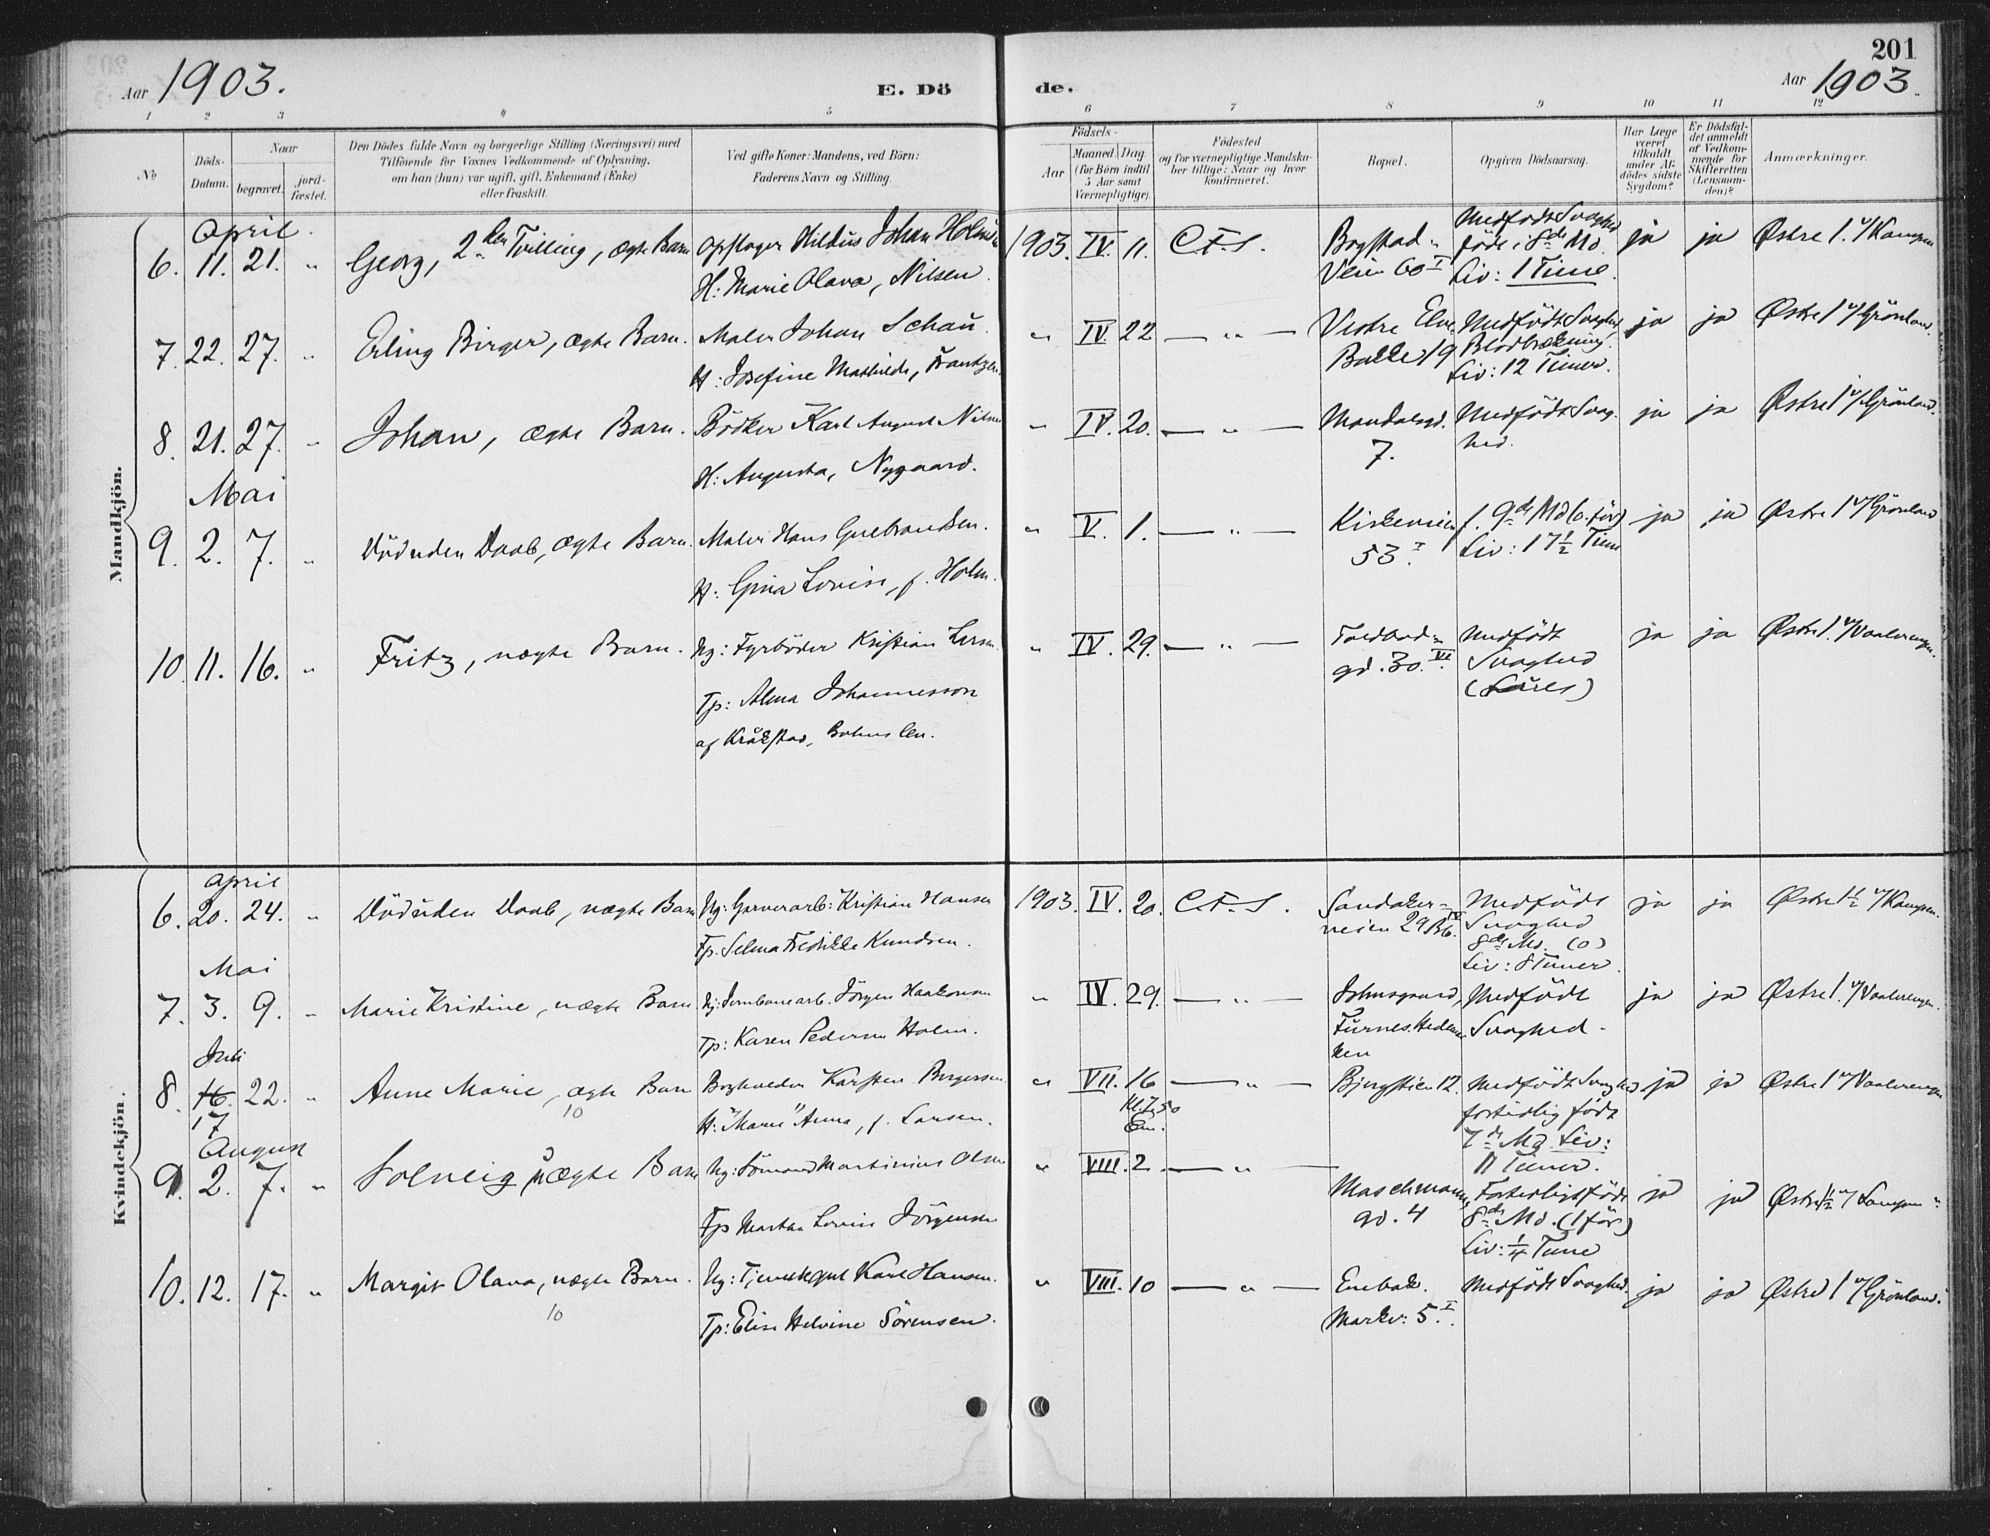 201
Aar 1903.
E. Dö
de.
Aar 1903.
1 2 3 4 5 6 7 8 9 10 11 12
No
Döds-
Datum.
Naar
begravet.
jord-
fæstet.
Den Dödes fulde Navn og borgerlige Stilling (Næringsvei) med
Tilföiende for Voxnes Vedkommende af Oplysning,
om han (hun) var ugift, gift, Enkemand (Enke)
eller fraskilt.
Ved gifte Koner: Mandens, ved Börn:
Faderens Navn og Stilling.
Födsels-
Aar
Maaned. Dag.
(for Börn indtil
5 Aar samt
Værnepligtige).
Födested
og for værnepligtige Mandska-
ber tillige: Naar og hvor
konfirmeret.
Bopæl.
Opgiven Dödsaarsag.
Har Læge
været
tilkaldt
under Af-
dödes sidste
Sygdom?
Er Dödsfal-
det anmeldt
af Vedkom-
mende for
Skifteretten
(Lensman-
den)?
Anmærkninger.
Mandkjön.
April.
6. 11. 21. " Georg, 2den Tvilling, ægte Barn Opslager Hildus Johan Holm 1903. IV. 11. C.F.S. Bogstad- Medfödt Svaghed ja ja Østre 1. v/Kampen
H: Marie Olava, Nilsen. Veien 60 I födt i 8de Md.
Liv: 1 Time.
7. 22. 27. " Erling Birger, ægte Barn. Maler Johan Schau. " IV. 22 — " — Vestre Elve Medfödt Svaghed ja ja Østre 1 v/Grönland.
H: Josefine Mathilde, Frantzen. Bakke 19 Blodbrækning.
Liv: 12 Timer.
8. 21. 27. " Johan, ægte Barn. Bödker Karl August Nilsen " IV. 20. — " — Mandalsgd. Medfödt Svag- ja ja Østre 1 v/Grönland.
H: Augusta, Nygaard. 7. hed.
Mai
9. 2. 7. " Död uden Daab, ægte Barn. Maler Hans Gulbrandsen. " V. 1. — " — Kirkeveien f. 9de Md (6. för) ja ja Østre 1 v/Grönland
H: Gina Lovise, f. Holm. 53 I Liv: 17½ Time
10. 11. 16. " Fritz, uægte Barn. Ug: Fyrböder Kristian Larsen. " IV. 29. — " — Toldbod- Medfödt ja ja Østre 1. v/Vaalerengen.
Tp: Alma Johannesson gd. 30. VI. Svaghed
af Kråkstad, Bohuslen. (Lues)
Kvindekjön.
April
6. 20. 24. " Död uden Daab, uægte Barn Ug: Garverarb: Kristian Hansen 1903. IV. 20. C.F.S. Sandaker- Medfödt ja ja Østre 1½ v/Kampen.
Tp. Selma Fredrikke Knudsen. veien 29 Bb. IV Svaghed
8de Md. (0)
Liv: 8 Timer.
Mai
7. 3. 9. " Marie Kristine, uægte Barn Ug: Jernbanearb. Jörgen Haakonsen " IV. 29. — " — Johnsgaard, Medfödt ja ja Østre 1. v/Vaalerengen.
Tp: Karen Pedersen Holm. Furnes, Hedemar Svaghed.
ken
Juli
8. 16. 22. " Anne Marie, ægte Barn Bogholder Karsten Bergersen " VII. 16 — " — Bjergstien 12. Medfödt Svaghed ja ja Østre 1 v/Vaalerengen
17 10 H: "Marie" Anna, f. Larsen. Kl. 7,50 fortidlig födt
Em. 7de Md. Liv:
11 Timer.
August
9. 2. 7. " Solveig, uægte Barn Ug: Sömand Martinius Olsen " VIII. 2 — " —
Maschmanns Fortidligt födt ja ja Østre ½ v/Kampen
Tp Martha Lovise Jörgensen gd. 4 8de Md. (1 för)
Liv: ¼ Time
10. 12. 17. " Margit Olava, uægte Barn. Ug: Tjenestegut Karl Hansen. " VIII. 10 — " — Enebak. Medfödt Svaghed. ja ja Østre 1 v/Grönland.
10 Tp: Elise Helvine Sörensen. Markv: 5 I.